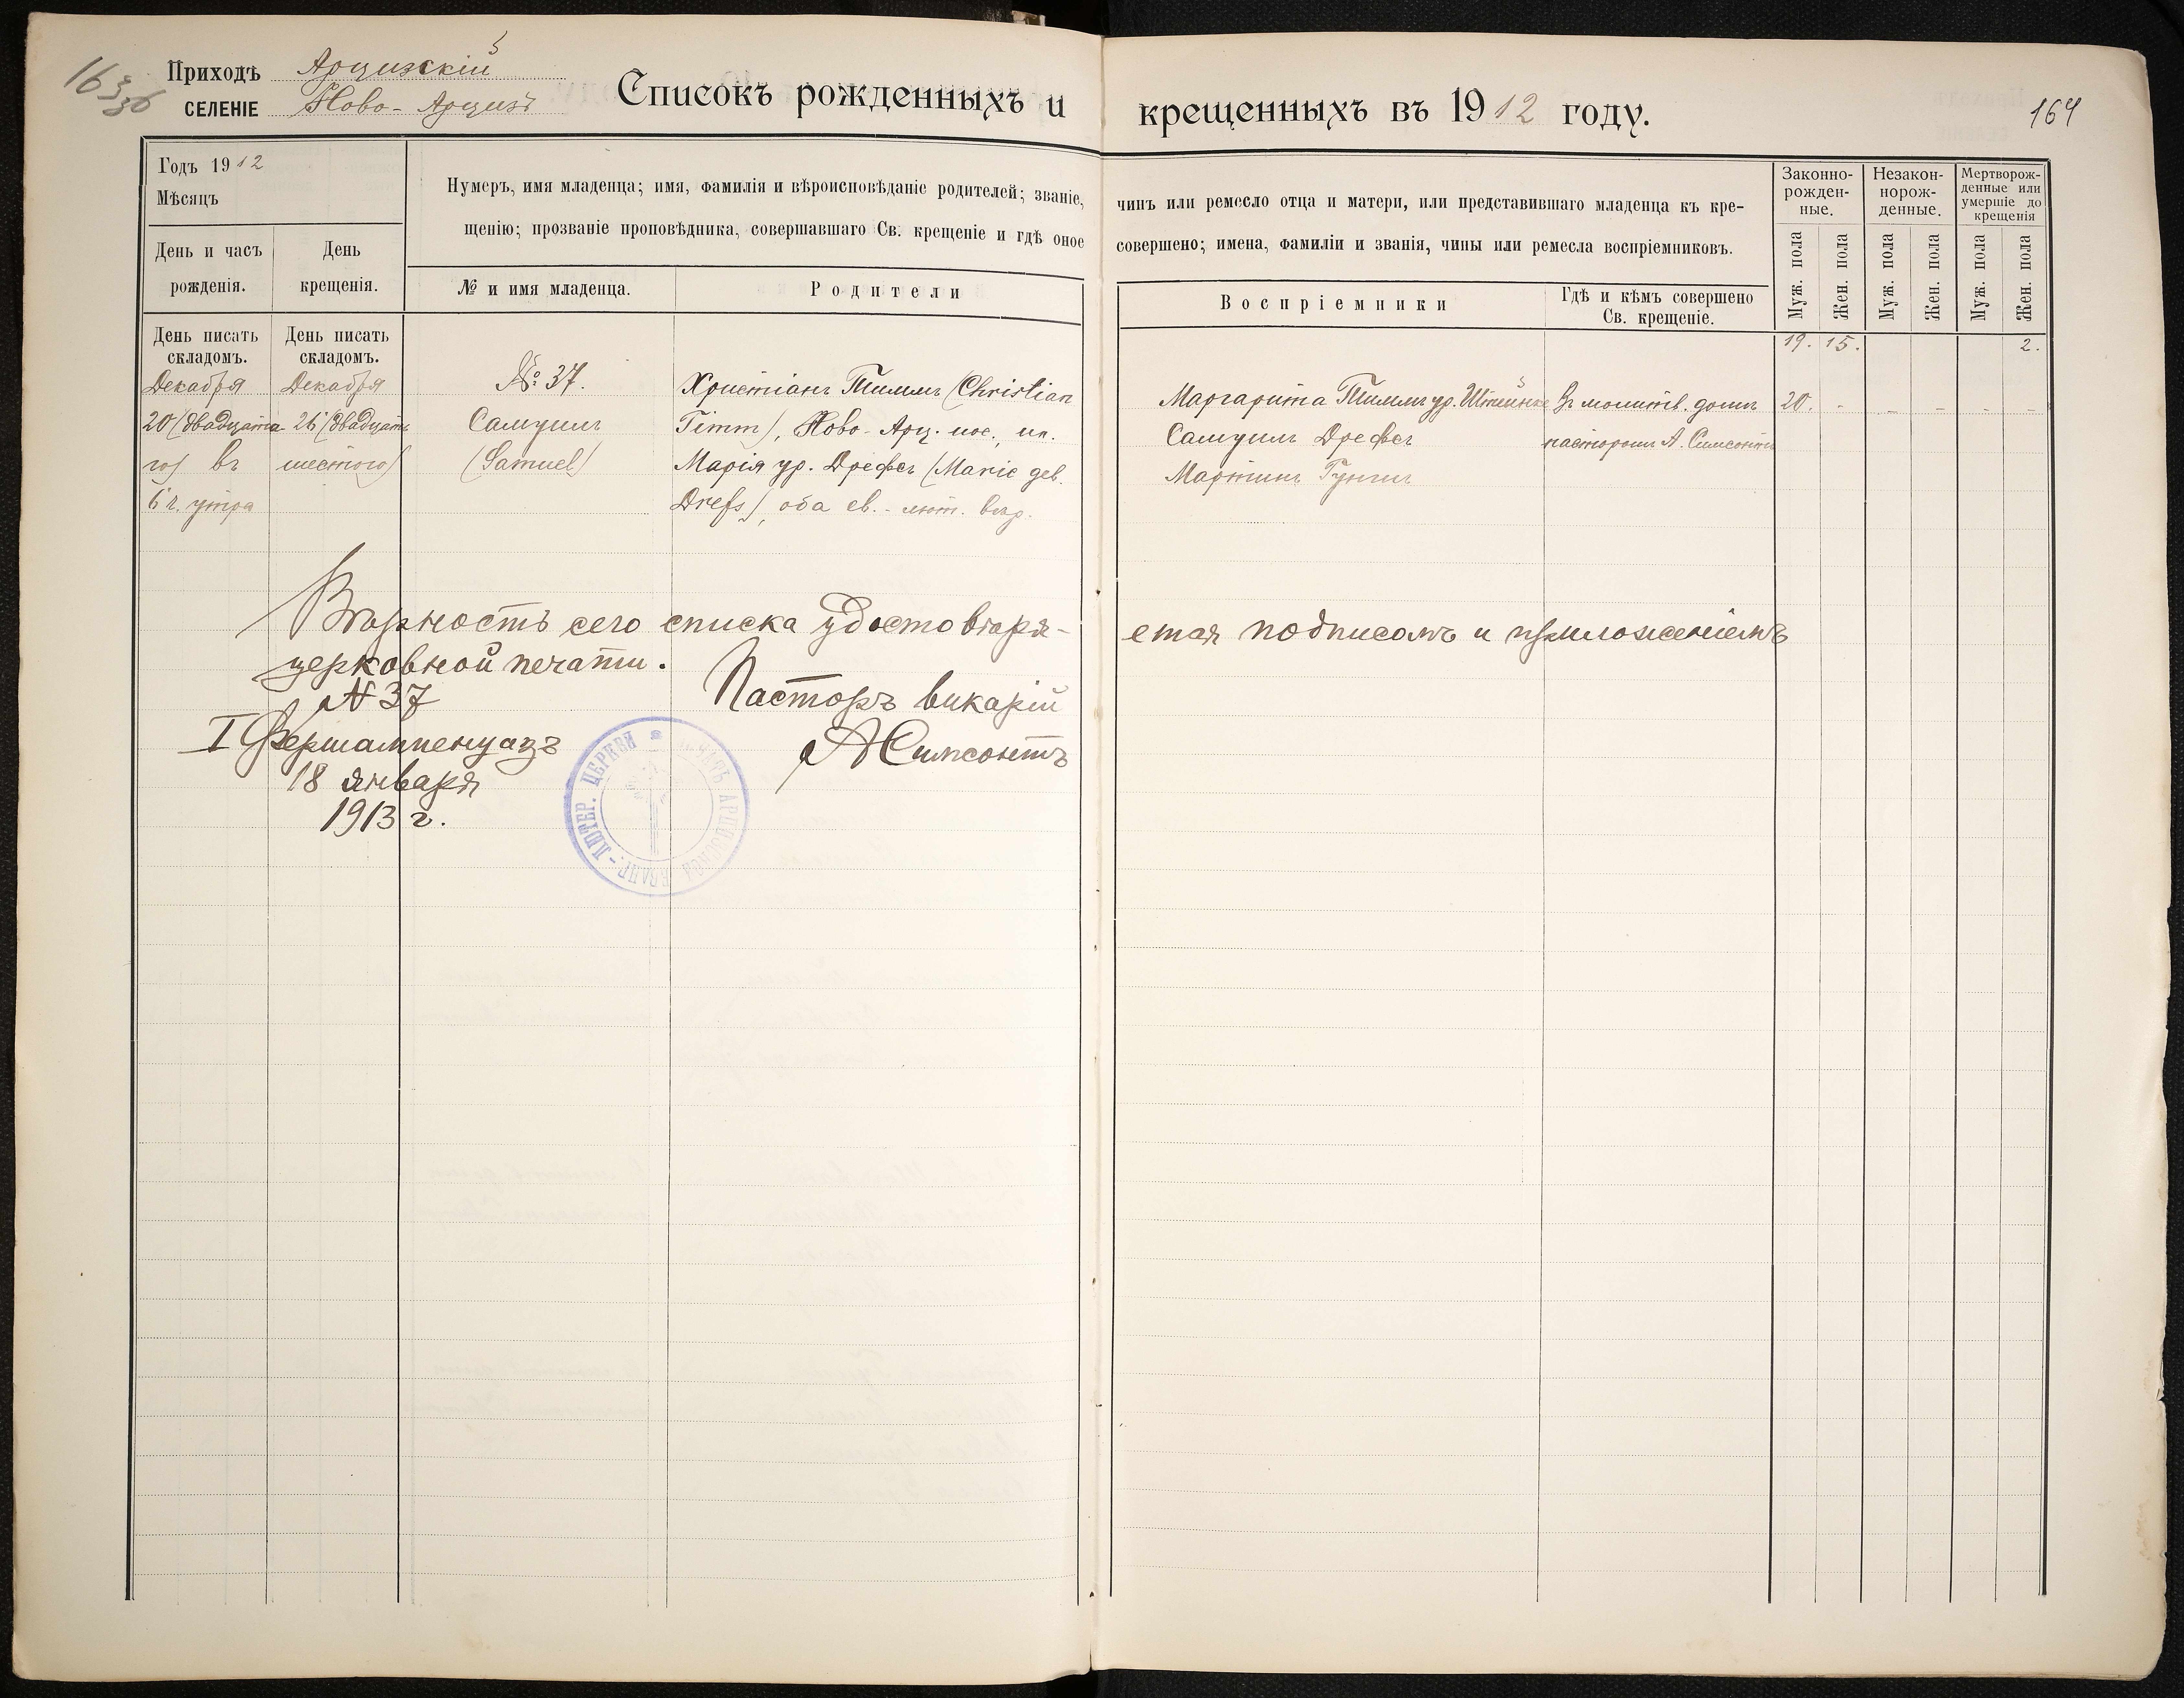 163
36
Приходъ Арцизскій
СЕЛЕНІЕ Ново-Арцизъ
Списокъ рожденныхъ и крещенныхъ въ 1912 году.
164
Годъ 1912
Мѣсяцъ
День и часъ рожденія.
День крещенія.
Нумеръ, имя младенца; имя, фамилія и вѣроисповѣданіе родителей; званіе, чинъ или ремесло отца и матери, или представившаго младенца къ кре-
щенію; прозваніе проповѣдника, совершавшаго Св. крещеніе и гдѣ оное совершено; имена, фамиліи и званія, чины или ремесла воспріемниковъ.
№ и имя младенца.
Родители
Воспріемники
Гдѣ и кѣмъ совершено
Св. крещеніе.
Законно-
рожден-
ные.
Незакон-
норож-
денные.
Мертворож-
денные или
умершіе до
крещенія
Муж. пола
Жен. пола
Муж. пола
Жен. пола
Муж. пола
Жен. пола
День писать
складомъ.
День писать
складомъ.
19. 15. 2.
Декабря
20 (двадцата-
го) въ
6 ч. утра
Декабря
26 (двадцать
шестого)
№ 37.
Самуилъ
(Samuel)
Христіанъ Тиммъ (Christian
Timm), Ново-Арц. пос., ип.
Марія ур. Дрефсъ (Marie дев.
Drefs), оба ев.-лют. вѣр.
Маргарита Тиммъ ур. Штейнке
Самуилъ Дрефсъ
Мартинъ
Въ молитв. домѣ
пасторомъ А. Симсонтъ
20. - - - - -
Вѣрность сего списка удостовѣря-
ется подписомъ и приложеніемъ
церковной печати.
N 37
I Фершампенуазъ
18 января
1913 г.
Пасторъ викарій
А Симсонтъ
ЛЮТЕР. ЦЕРКВИ